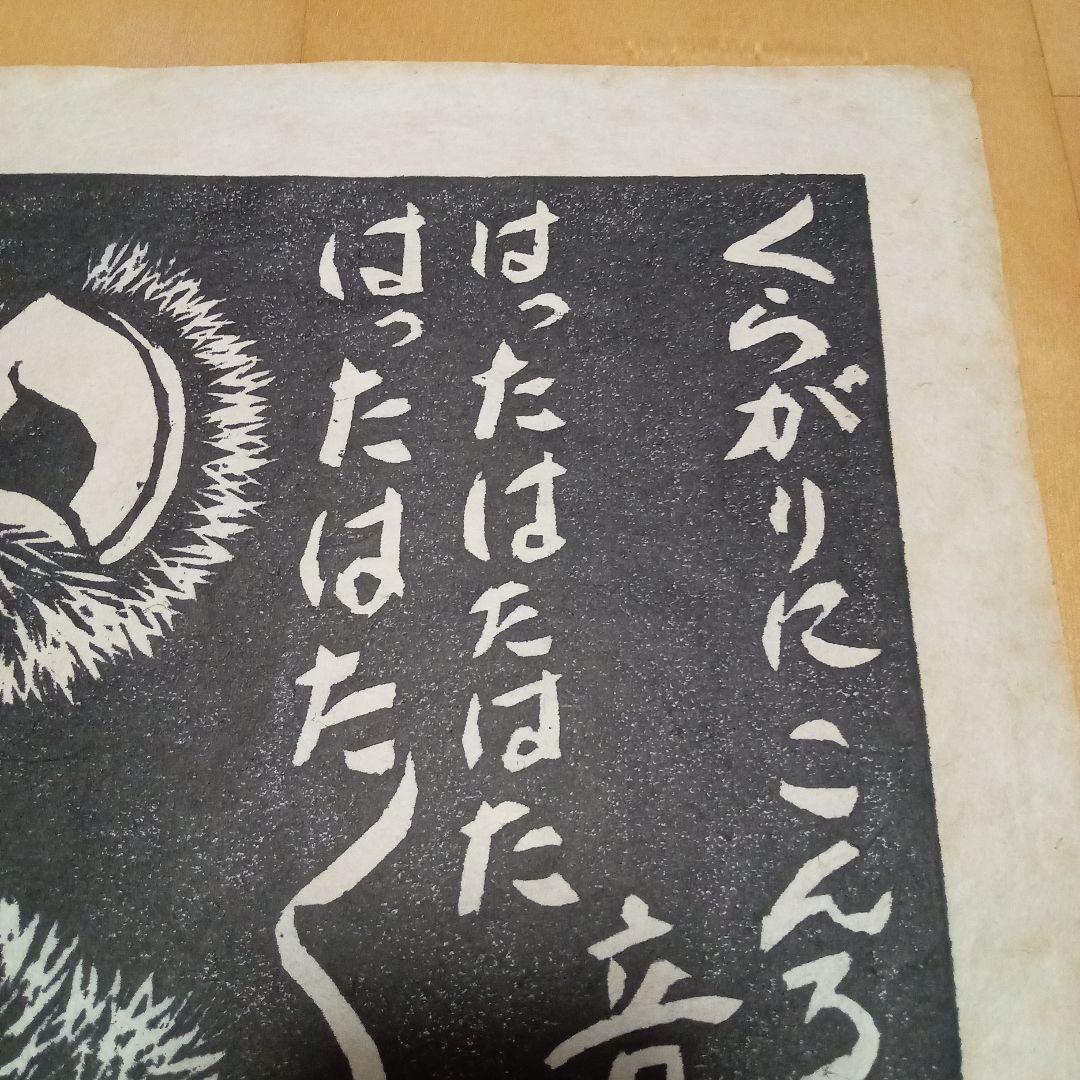 くらがりにこんろ
音
はったはたはた
はったはた〱